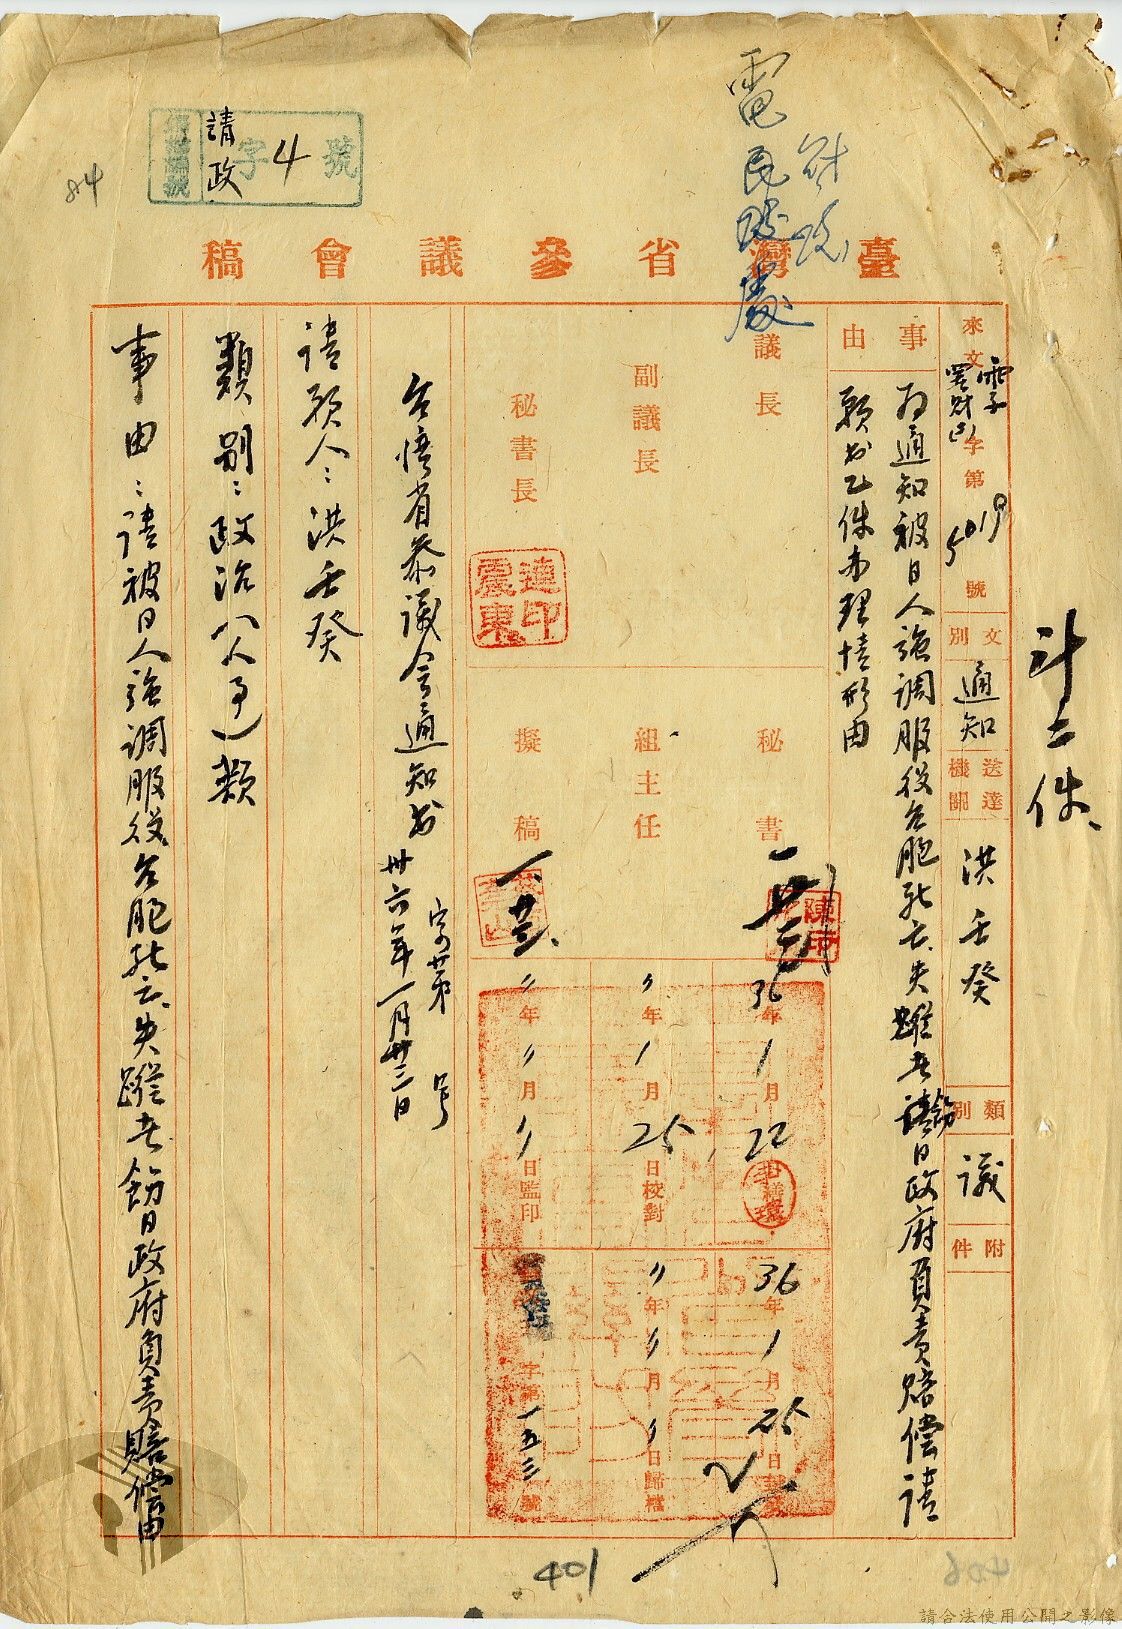 計二件、
來文 字第5019號
文別 通知
送達機關 洪壬癸
類別 議
附件
事由
為通知被日人強調服役台胞死亡、失蹤者請飭日政府負責賠償請
願書乙件辦理情形由
臺灣省參議會稿
電民政處
財政
請政字4號
84
議長
副議長
秘書長
連震東印
秘書
組主任
擬稿
36年1月22日
〃年1月25日校對
〃年〃月〃日監印
36年1月25日
〃年〃月〃日歸檔
字第一五三號
台灣省參議會通知書
字第 號
卅六年一月廿三日
請願人：洪壬癸
類別：政治（人事）類
事由：請被日人強調服役台胞死亡、失蹤者飭日政府負責賠償由
401
請合法使用公開之影像